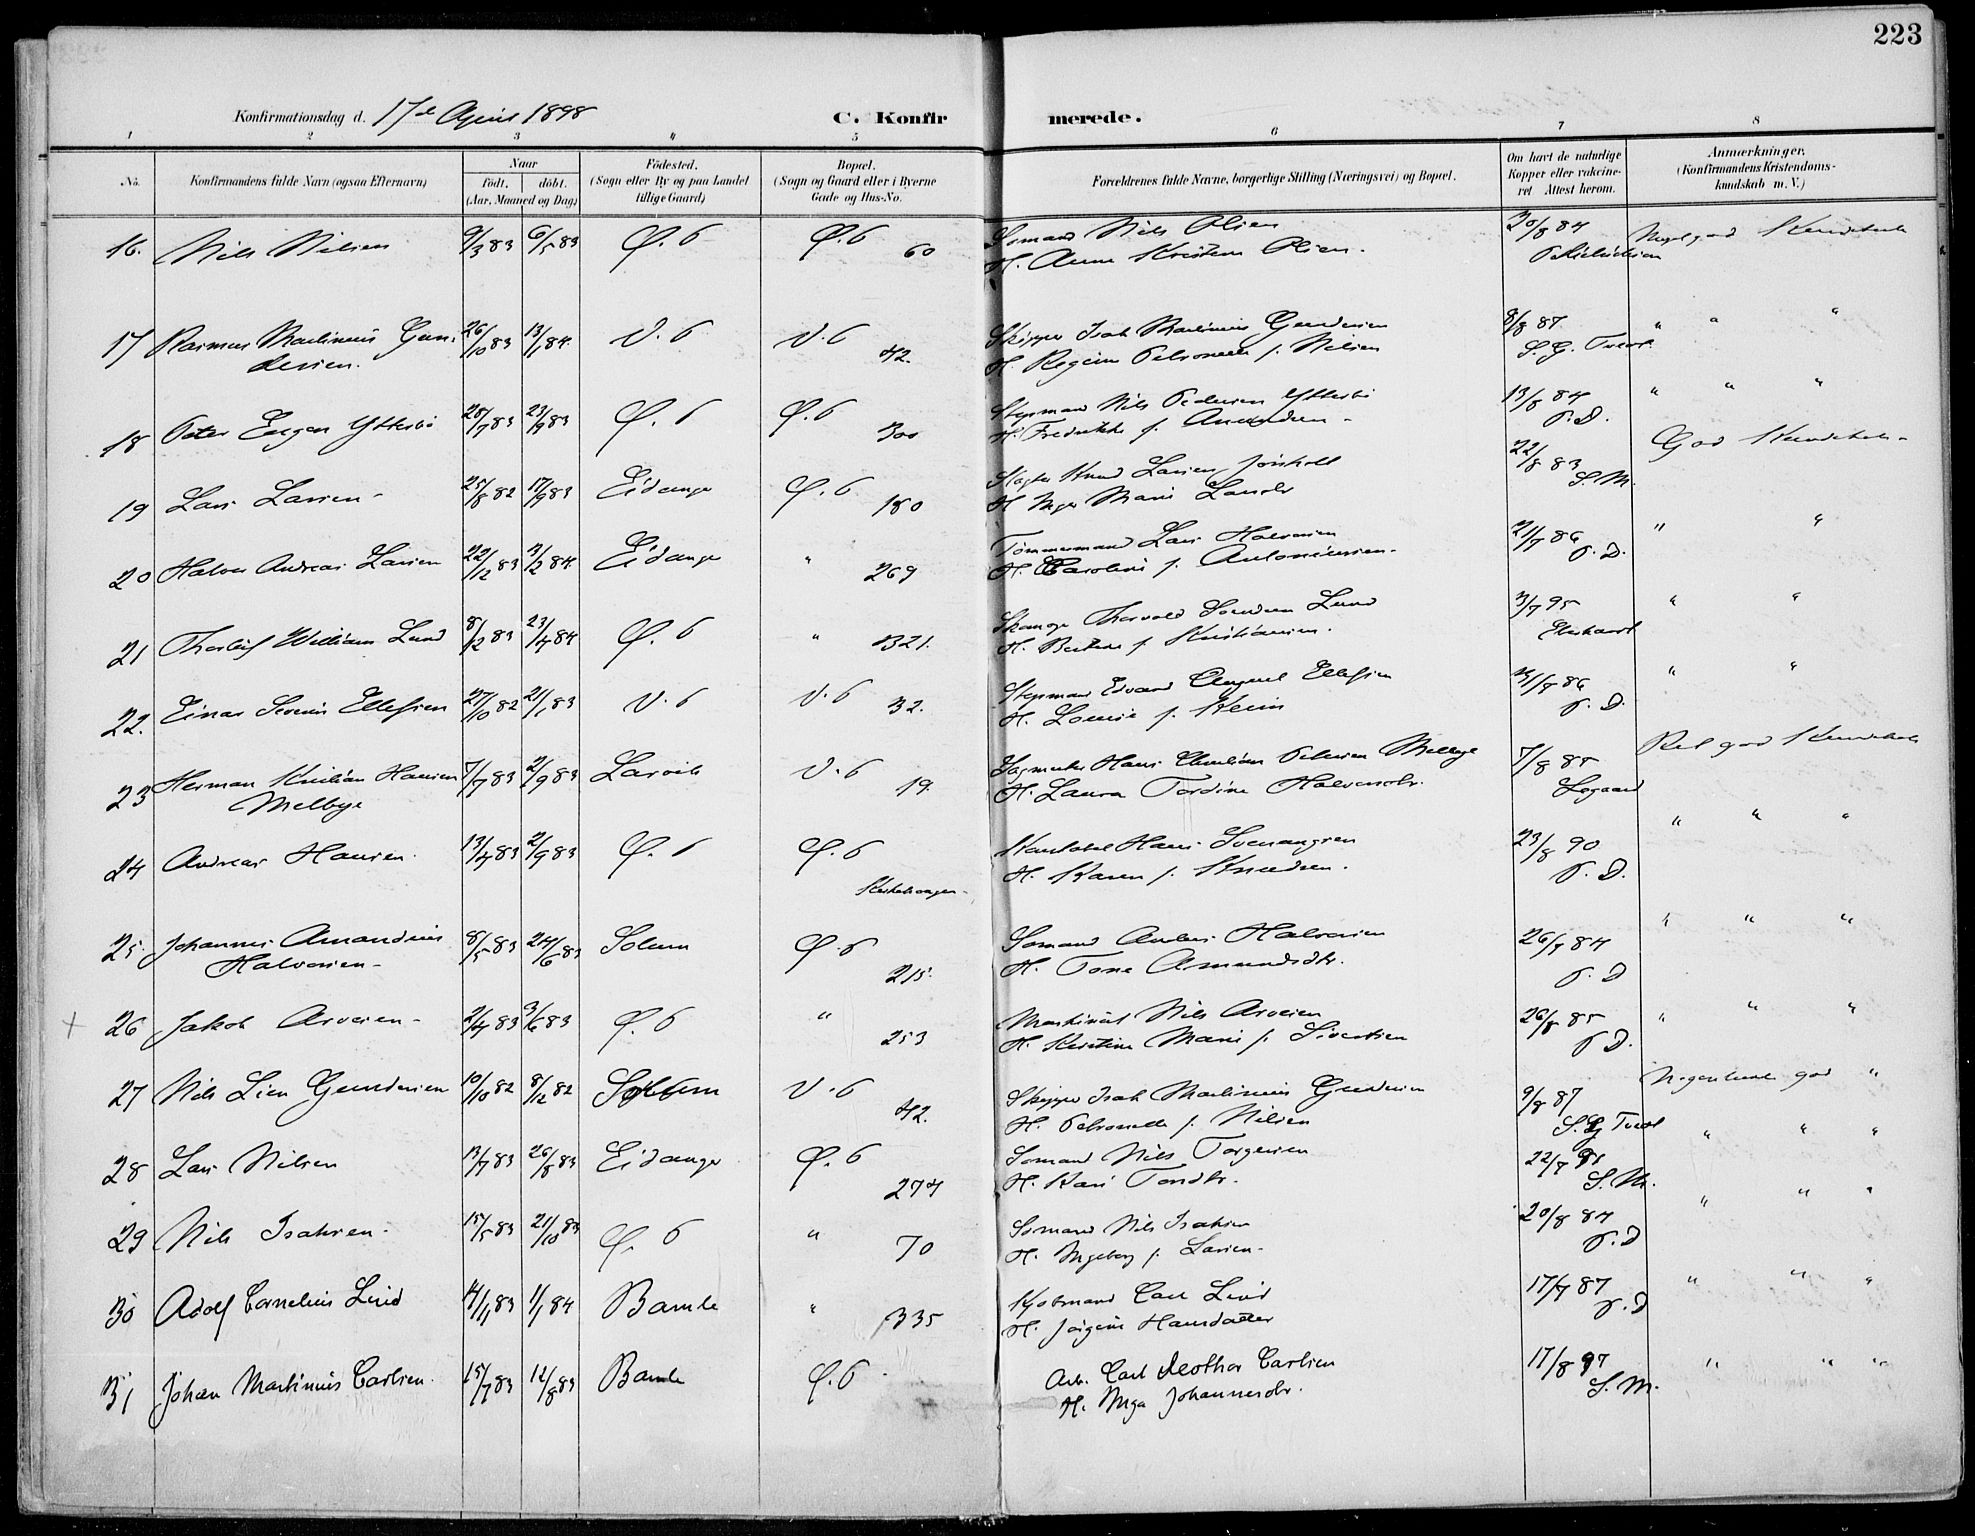 223
Konfirmationsdag d. 17de April 1898
C. Konfir merede.
1 2 3 4 5 6 7 8
No.
Konfirmandens fulde Navn (ogsaa Efternavn)
Naar
født. døbt.
(Aar, Maaned og Dag)
Fødested.
(Sogn eller By og paa Landet
tillige Gaard)
Bopæl.
(Sogn og Gaard eller i Byerne
Gade og Hus-No.
Forældrenes fulde Navne, borgerlige Stilling (Næringsvei) og Bopæl.
Om havt de naturlige
Kopper eller vakcine-
ret Attest herom.
Anmærkninger.
(Konfirmandens Kristendoms-
kundskab m. V.)
16. Nils Nilsen 9/3 83 6/5 83 Ø. 6 Ø. 6 60 Sømand Nils Olsen 30/8 84 Meget god Kundskab
H. Anne Kristine Olsen.
17 Rasmus Martinius Gun- 26/10 83 13/1 84. V. 6 V. 6 42. Skipper Isak Martinius Gundersen 8/8 87 " " "
dersen. H. Regine Petronelle f. Nielsen S. G.
18 Peter Eugen Ytterbø 28/7 83 23/9 83 Ø. 6 Ø. 6 300 Styrmand Nils Pedersen Ytterbø 13/8 84 " " "
H. Fredrikke f. P. D.
19 Lars Larsen - 25/8 82 17/9 83 Eidanger Ø. 6 180 Slagter Knud Larsen 22/8 83 God Kundskab -
H. Inger Marie Larsdtr S. M.
20 Halvor Andreas Larsen 22/12 83 3/2 84. Eidanger " 269 Tømmermand Lars Halvorsen 21/7 86 " "
H. Caroline f. Antoniussen. P. D.
21 Thorleif William Lund 8/12 83 23/4 84 Ø. 6 " 321. Thorvald Lund 3/7 95 " "
H. f. Kristiansen.
22. Einar Severin Ellefsen 27/10 82 21/1 83 V. 6 V. 6 32. Styrmand Edvard Ellefsen 31/7 86 " "
H. Louise f. P. D.
23 Herman Kristian Hansen 7/7 83 2/9 83 Larvik V. 6 19. Hans Christian Petersen Melbye 7/8 85 god Kundskab
Melbye H. Laura Tordine Halvorsdtr.
24 Andreas Hansen. 13/4 83 2/9 83 Ø. 6 Ø. 6 Hans 23/8 90 " " "
H. Karen f. Knudsen. P. D.
25. Johannes Amandius 8/5 83 24/6 83 Solum Ø. 6 215. Sømand Anders Halvorsen 26/7 84 " " "
Halvorsen - H. Tone Amundsdtr. P. D
+ 26 Jakob Arvesen - 2/4 83 3/6 83 Ø. 6 " 253 Maskinist Nils Arvesen 26/8 85 " " "
H. Kristine Marie f. Sivertsen P D.
27 Nils Lien Gundersen 10/10 82 8/12 82 Solum V. 6 42. Skipper Isak Martinius Gundersen 9/8 87 Nogenlunde god "
H. Petronelle f. Nilsen S. G
28 Lars Nilsen 13/7 83 26/8 83 Eidanger Ø. 6 274 Sømand Nils Torgersen 22/7 " " "
H. Kari S. M.
29 Nils Isaksen - 15/5 83 21/10 83 Ø. 6 " 70 Sømand Nils Isaksen 20/8 84 " " "
H. Ingeborg f. Larsen - P. D
30 Adolf Cornelius Lind 14/11 83 1/1 84 Bamle " 335 Kjøbmand Carl Lind 17/7 87 " " "
H. Jørgine Hansdatter P. D
31 Johan Martinius Carlsen. 15/7 83 12/8 83 Bamle Ø. 6 Arb. Carl Carlsen 17/8 97 " " "
H. Inga Johannesdtr. S. M.